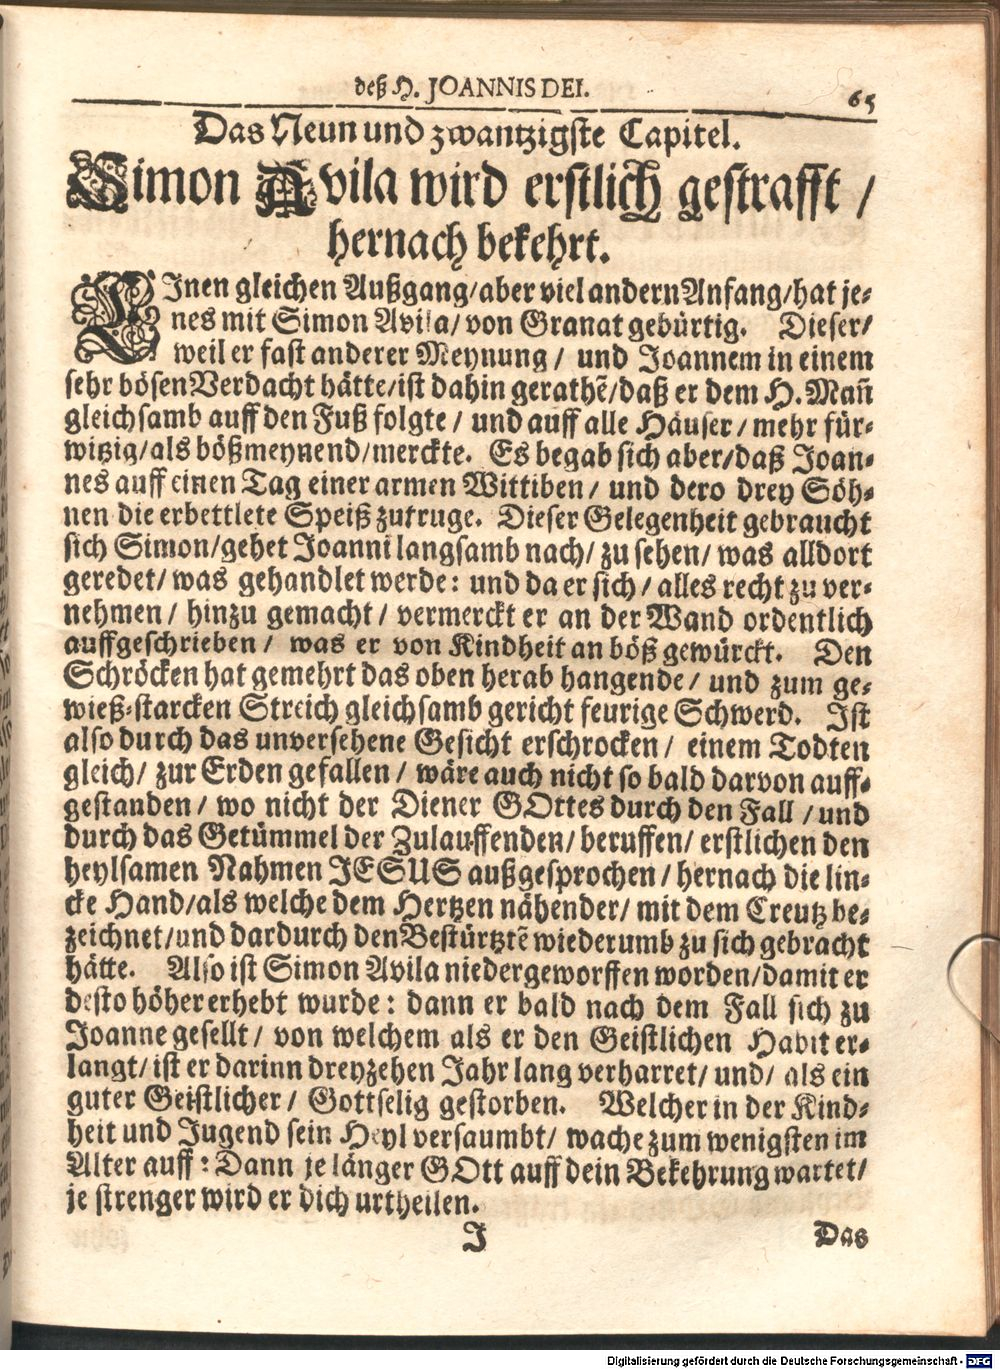 deß H. JOANNIS DEI.
65
Das Neun und zwantzigste Capitel.
Simon Avila wird erstlich gestrafft /
hernach bekehrt.
EInen gleichen Außgang/aber viel andern Anfang/hat je-
nes mit Simon Avila/ von Granat gebürtig. Dieser/
weil er fast anderer Meynung / und Joannem in einem
sehr bösen Verdacht hätte/ist dahin gerathē/daß er dem H. Mañ
gleichsamb auff den Fuß folgte / und auff alle Häuser / mehr für-
witzig/als bößmeynend/merckte. Es begab sich aber/daß Joan-
nes auff einen Tag einer armen Wittiben / und dero drey Söh-
nen die erbettlete Speiß zutruge. Dieser Gelegenheit gebraucht
sich Simon/gehet Joanni langsamb nach/ zu sehen/ was alldort
geredet/ was gehandlet werde: und da er sich / alles recht zu ver-
nehmen / hinzu gemacht / vermerckt er an der Wand ordentlich
auffgeschrieben / was er von Kindheit an böß gewürckt. Den
Schröcken hat gemehrt das oben herab hangende / und zum ge-
wieß-starcken Streich gleichsamb gericht feurige Schwerd. Ist
also durch das unversehene Gesicht erschrocken / einem Todten
gleich/ zur Erden gefallen / wäre auch nicht so bald darvon auff-
gestanden / wo nicht der Diener GOttes durch den Fall / und
durch das Getümmel der Zulauffenden/ beruffen/ erstlichen den
heylsamen Nahmen JESUS außgesprochen / hernach die lin-
cke Hand/als welche dem Hertzen nähender/ mit dem Creutz be-
zeichnet/und dardurch den Bestürtztē wiederumb zu sich gebracht
hätte. Also ist Simon Avila niedergeworffen worden/damit er
desto höher erhebt wurde: dann er bald nach dem Fall sich zu
Joanne gesellt / von welchem als er den Geistlichen Habit er-
langt/ ist er darinn dreyzehen Jahr lang verharret/ und/ als ein
guter Geistlicher / Gottselig gestorben. Welcher in der Kind-
heit und Jugend sein Heyl versaumbt/ wache zum wenigsten im
Alter auff: Dann je länger GOtt auff dein Bekehrung wartet/
je strenger wird er dich urtheilen.
J
Das
Digitalisierung gefördert durch die Deutsche Forschungsgemeinschaft - DFG